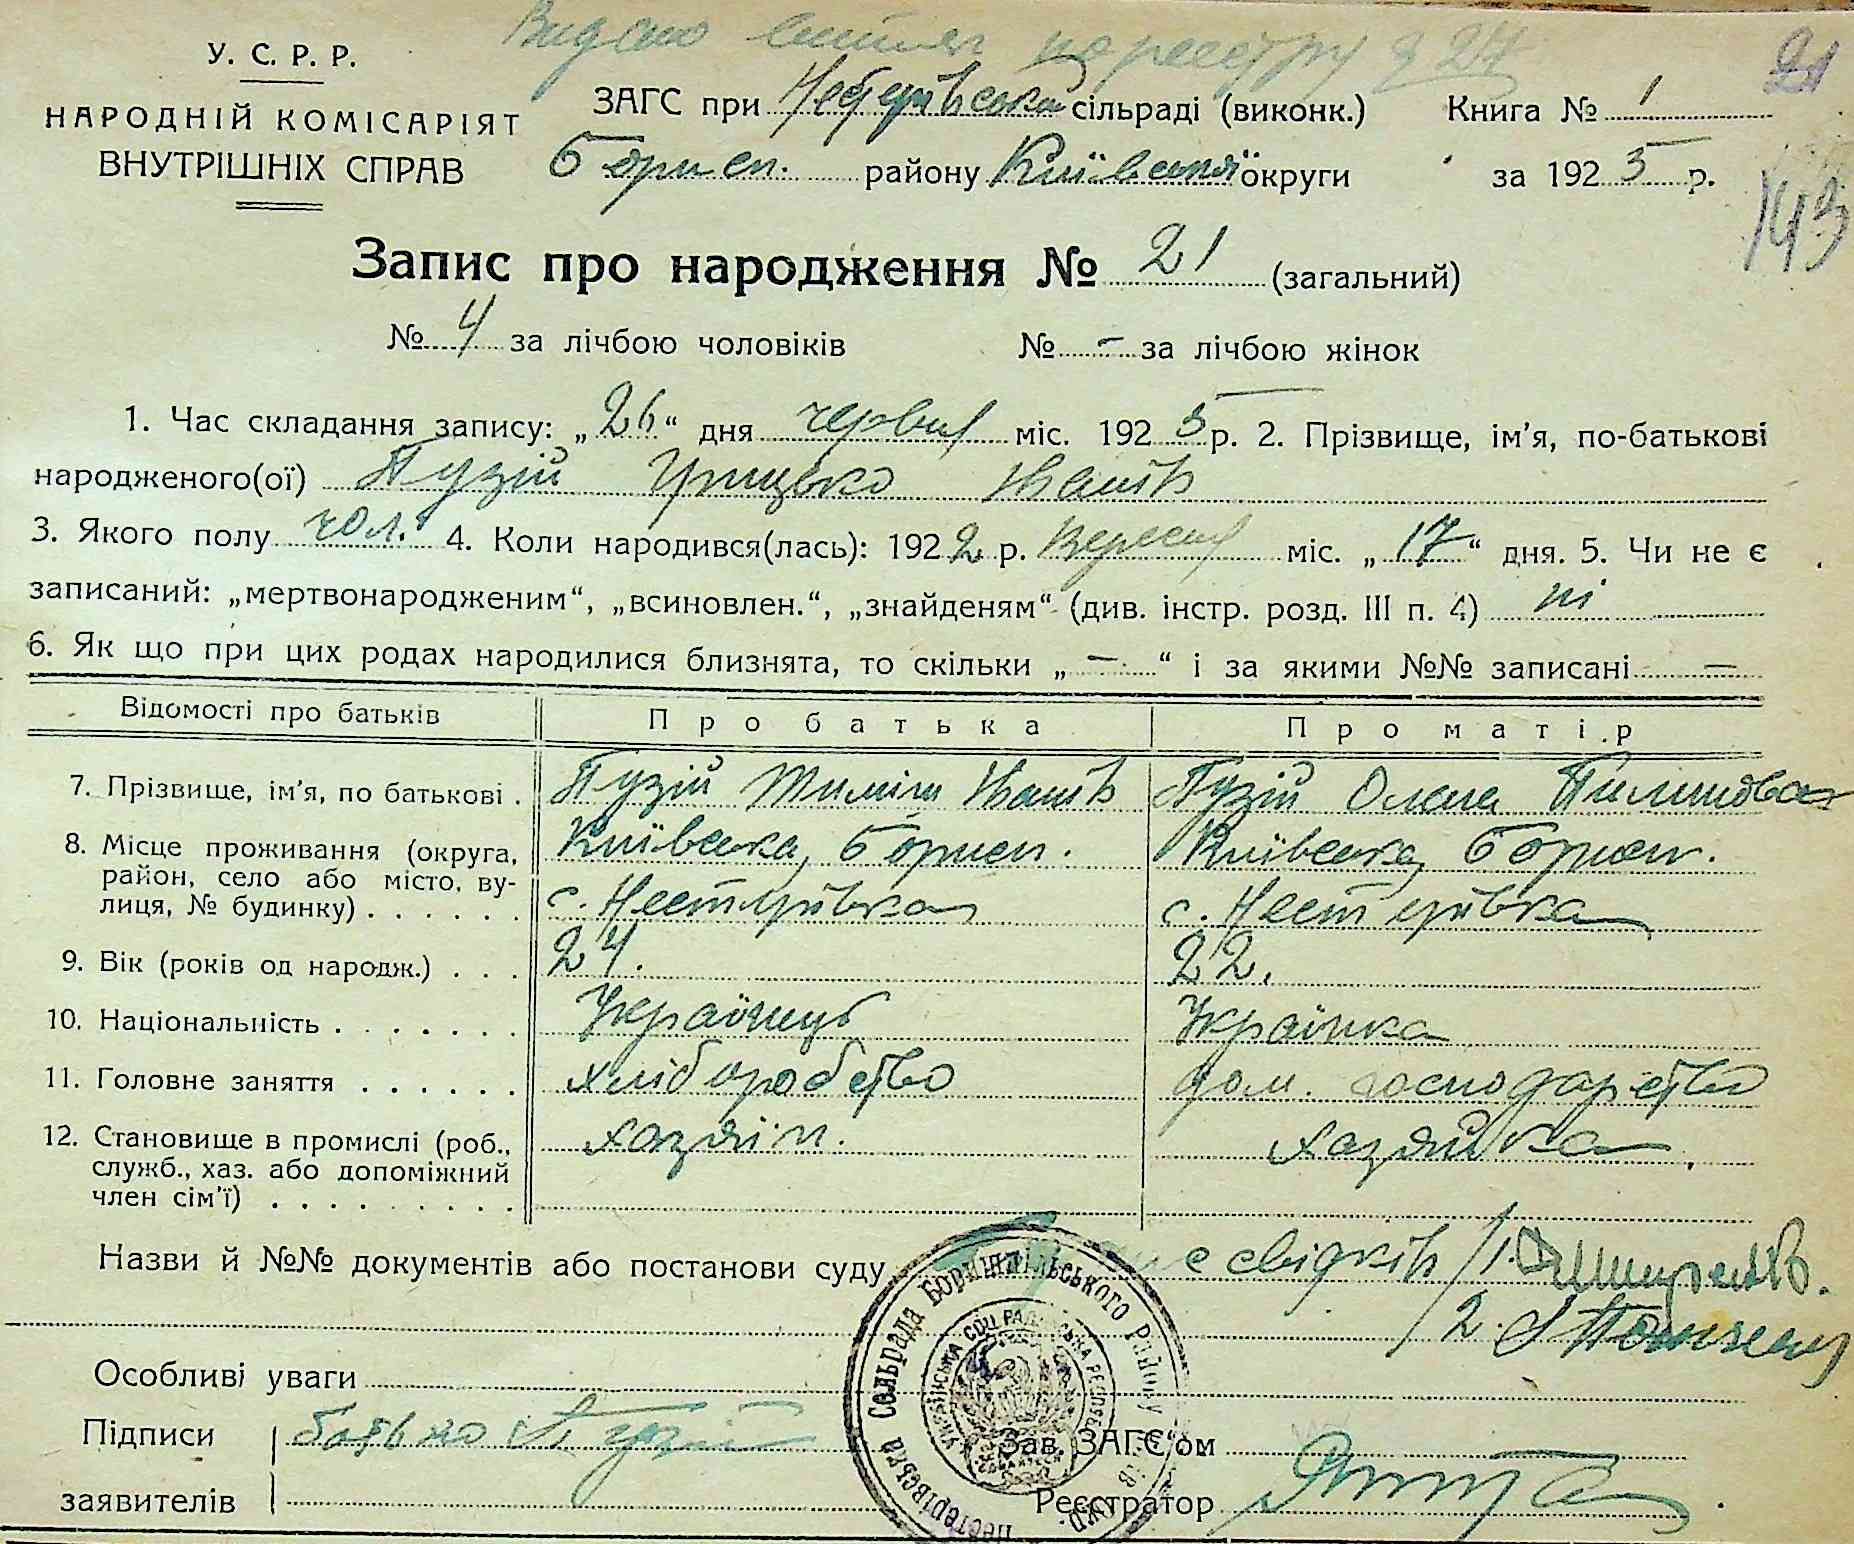 Видано витяг по реєстру з 27
21
У. С. Р. Р.
НАРОДНІЙ КОМІСАРІЯТ
ВНУТРІШНІХ СПРАВ
ЗАГС при сільраді (виконк.) Книга № 1
Борисп. району Київської округи за 1925 р.
143
Запис про народження № 21 (загальний)
№ 4 за лічбою чоловіків № - за лічбою жінок
1. Час складання запису: „26“ дня червня міс. 1925 р. 2. Прізвище, ім'я, по-батькові
народженого(ої) Пузій Грицько Іванів
3. Якого полу чол. 4. Коли народився(лась): 1922 р. Вересня міс. „17“ дня. 5. Чи не є
записаний: „мертвонародженим“, „всиновлен.“, „знайденям“ (див. інстр. розд. III п. 4) ні
6. Як що при цих родах народилися близнята, то скільки „—“ і за якими №№ записані —
Відомості про батьків Про батька Про матір
7. Прізвище, ім'я, по батькові . Пузій Тиміш Іванів Пузій Олена Пилипова
8. Місце проживання (округа, Київська, Борисп. Київська, Борисп.
район, село або місто, ву-
лиця, № будинку) . . . . . . с. Нестерівка с. Нестерівка
9. Вік (років од народж.) . . . 24. 22.
10. Національність . . . . . . . Українець Українка
11. Головне заняття . . . . . . хліборобство дом. господарство
12. Становище в промислі (роб., хазяїн. хазяйка.
служб., хаз. або допоміжний
член сім'ї) . . . . . . . . .
Назви й №№ документів або постанови суду є свідків /1.
/2.
Особливі уваги
Підписи батько Пузій Зав. ЗАГС'ом
заявителів Реєстратор
Нестерівська Сельрада Бориспільського Району Київ Окр.
УКРАЇНСЬКА СОЦ РАДЯНСЬКА РЕСПУБ